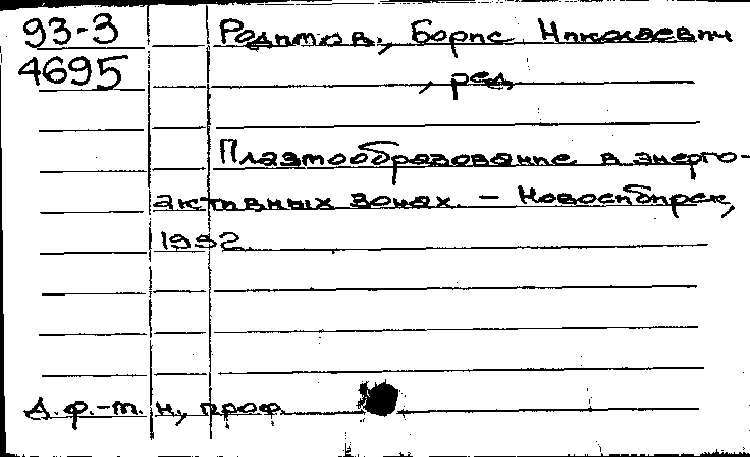 93-3
4695
Родитов, Борис Николаевич
, ред.
Плазмообразование в энерго-
активных зонах. – Новосибирск,
1992.
д. ф.-м. н., проф.